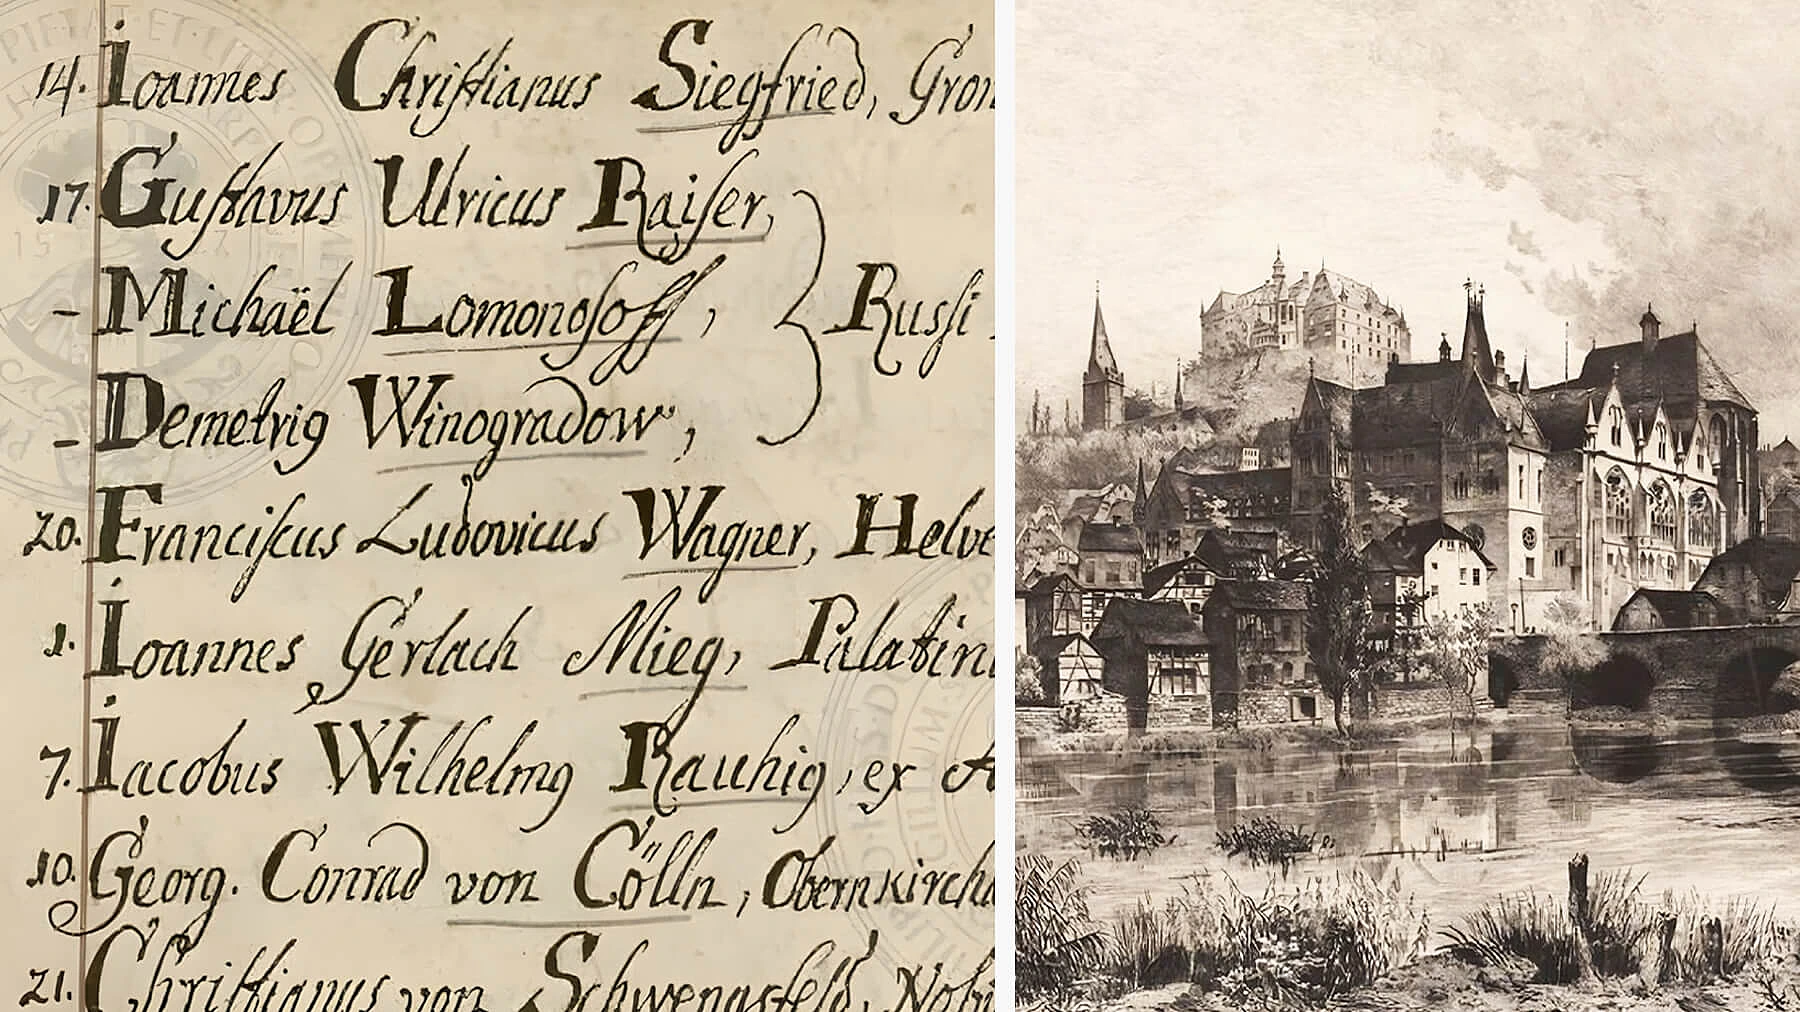 14. Ioannes Christianus Siegfried, Gron
17. Gustavus Ulricus Raiser,
- Michaël Lomonosoff, Russi
- Demetrig Winogradow,
20. Franciscus Ludovicus Wagner, Helve
1. Ioannes Gerlach Mieg, Palatin
7. Iacobus Wilhelmg Rauhig, ex A
10. Georg. Conrad von Cölln, Obernkirch
21. Christianus von Schwengsfeld, Nobi